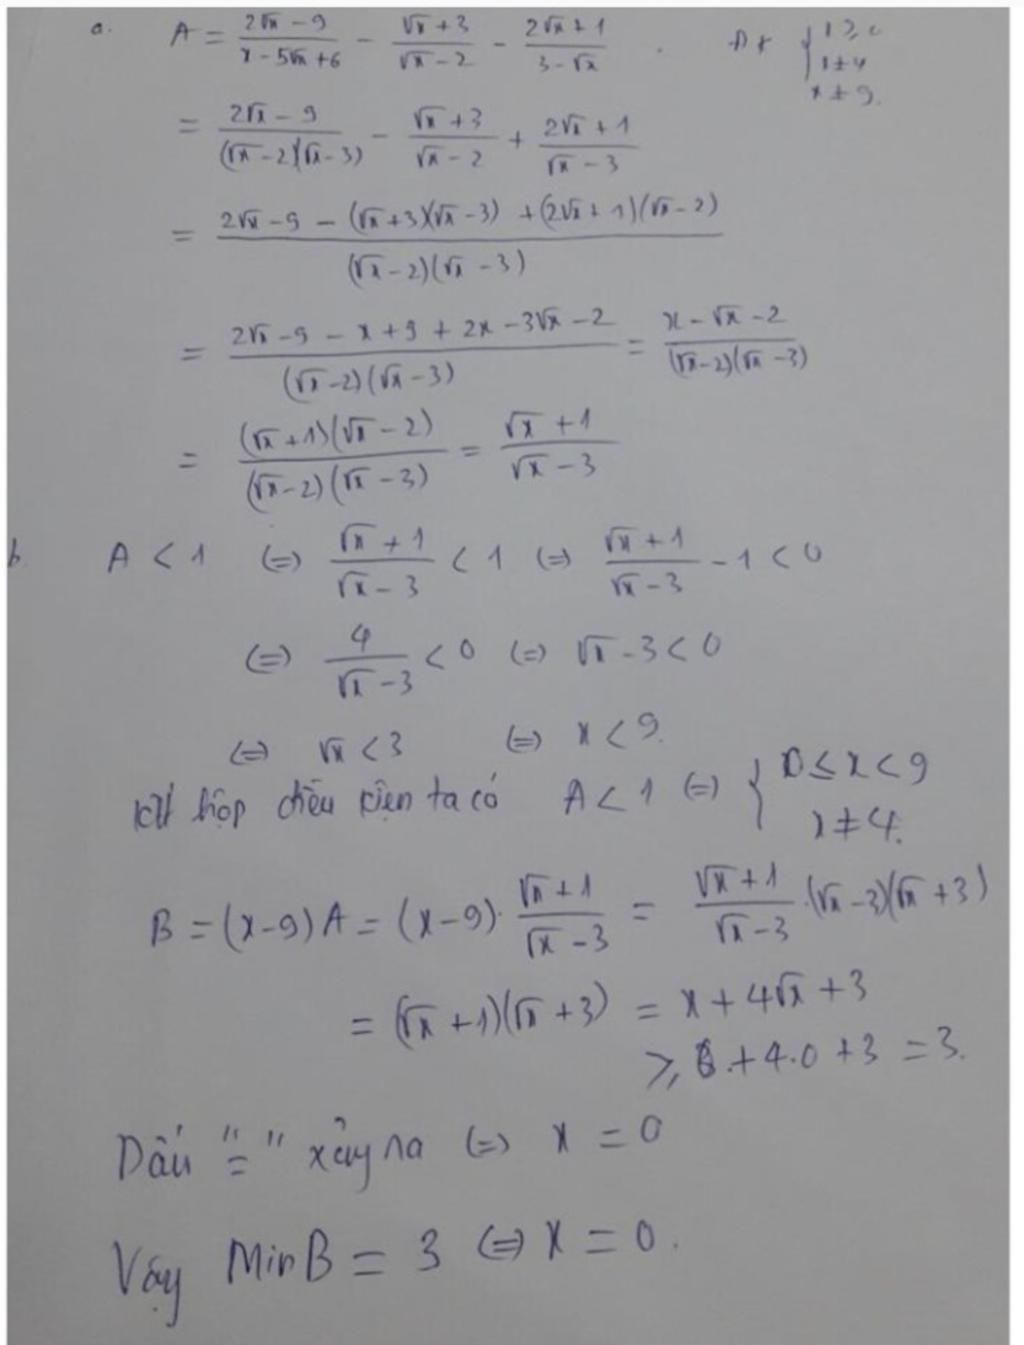 a. A = (2√x - 9)/(x - 5√x + 6) - (√x + 3)/(√x - 2) - (2√x + 1)/(3 - √x) . Đk { x ≥ 0 x ≠ 4 x ≠ 9.
= (2√x - 9)/((√x - 2)(√x - 3)) - (√x + 3)/(√x - 2) + (2√x + 1)/(√x - 3)
= (2√x - 9 - (√x + 3)(√x - 3) + (2√x + 1)(√x - 2))/((√x - 2)(√x - 3))
= (2√x - 9 - x + 9 + 2x - 3√x - 2)/((√x - 2)(√x - 3)) = (x - √x - 2)/((√x - 2)(√x - 3))
= ((√x + 1)(√x - 2))/((√x - 2)(√x - 3)) = (√x + 1)/(√x - 3)
b. A < 1 (=) (√x + 1)/(√x - 3) < 1 (=) (√x + 1)/(√x - 3) - 1 < 0
(=) 4/(√x - 3) < 0 (=) √x - 3 < 0
(=) √x < 3 (=) x < 9.
Kết hợp điều kiện ta có A < 1 (=) { 0 ≤ x < 9 x ≠ 4.
B = (x - 9) A = (x - 9) . (√x + 1)/(√x - 3) = (√x + 1)/(√x - 3) . (√x - 3)(√x + 3)
= (√x + 1)(√x + 3) = x + 4√x + 3
≥ 0 + 4.0 + 3 = 3.
Dấu "=" xảy ra (=) x = 0
Vậy Min B = 3 (=) x = 0.